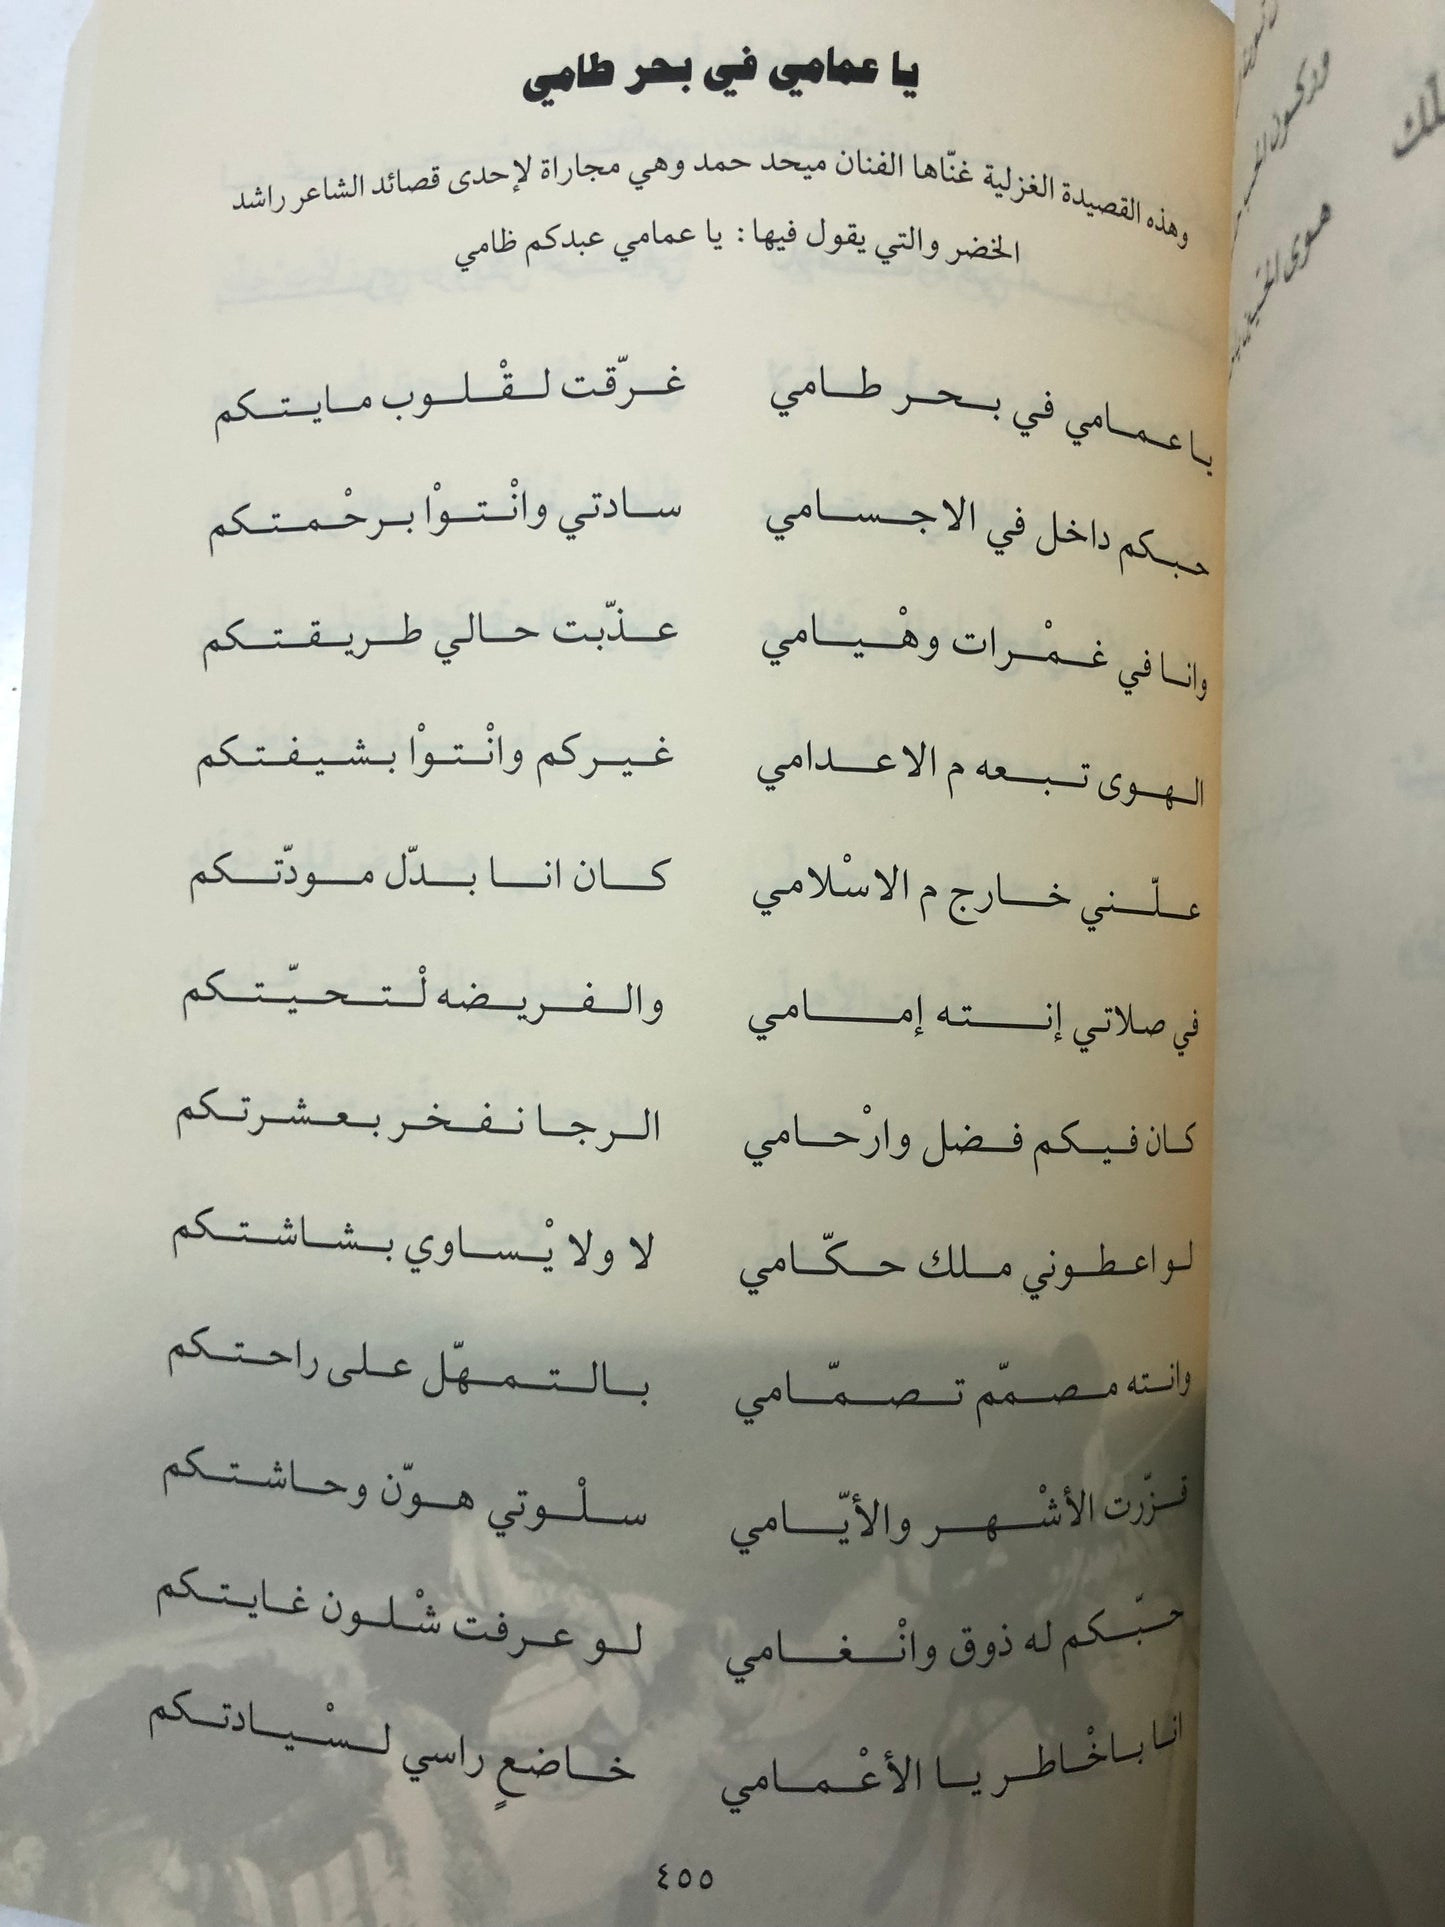 يا عمامي في بحر طامي
وهذه القصيدة الغزلية غنّاها الفنان ميحد حمد وهي مجاراة لإحدى قصائد الشاعر راشد
الخضر والتي يقول فيها: يا عمامي عبدكم ظامي
يا عمامي في بحر طامي غرّقت لقْلوب مايتكم
حبكم داخل في الاجسامي سادتي وانْتوْا برحْمتكم
وانا في غمْرات وهْيامي عذّبت حالي طريقتكم
الهوى تبعه م الاعدامي غيركم وانْتوْا بشيفتكم
علّني خارج م الاسْلامي كان انا بدّل مودّتكم
في صلاتي إنته إمامي والفريضه لْتحيّتكم
كان فيكم فضل وارْحامي الرجا نفخر بعشرتكم
لو اعطوني ملك حكّامي لا ولا يْساوي بشاشتكم
وانته مصمّم تصمّامي بالتمهّل على راحتكم
قزّرت الأشْهر والأيّامي سلْوتي هوّن وحاشتكم
حبّكم له ذوق وانْغامي لو عرفت شْلون غايتكم
انا باخْاطر يا الأعْمامي خاضعٍ راسي لسْيادتكم
٤٥٥
هوى